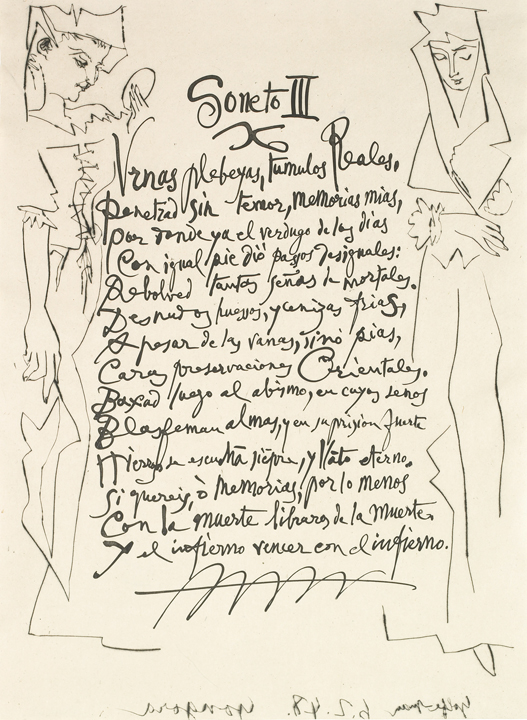 Soneto III
Vrnas plebeyas, tumulos Reales,
Penetrad sin temor, memorias mias,
Por donde ya el verdugo de los dias
Con igual pie diò passos desiguales:
Rebolved tantas señas de mortales,
Desnudos huessos, y cenizas frias,
A pesar de las vanas, sinò pias,
Caras preservaciones Orientales.
Baxad luego al abismo, en cuyos senos
Blasfeman almas, y en su prision fuerte
Hierros se escuchã siẽpre, y llãto eterno.
Si quereis, ò memorias, por lo menos
Con la muerte libraros de la Muerte,
Y el infierno vencer con el infierno.
6.2.48. gongora